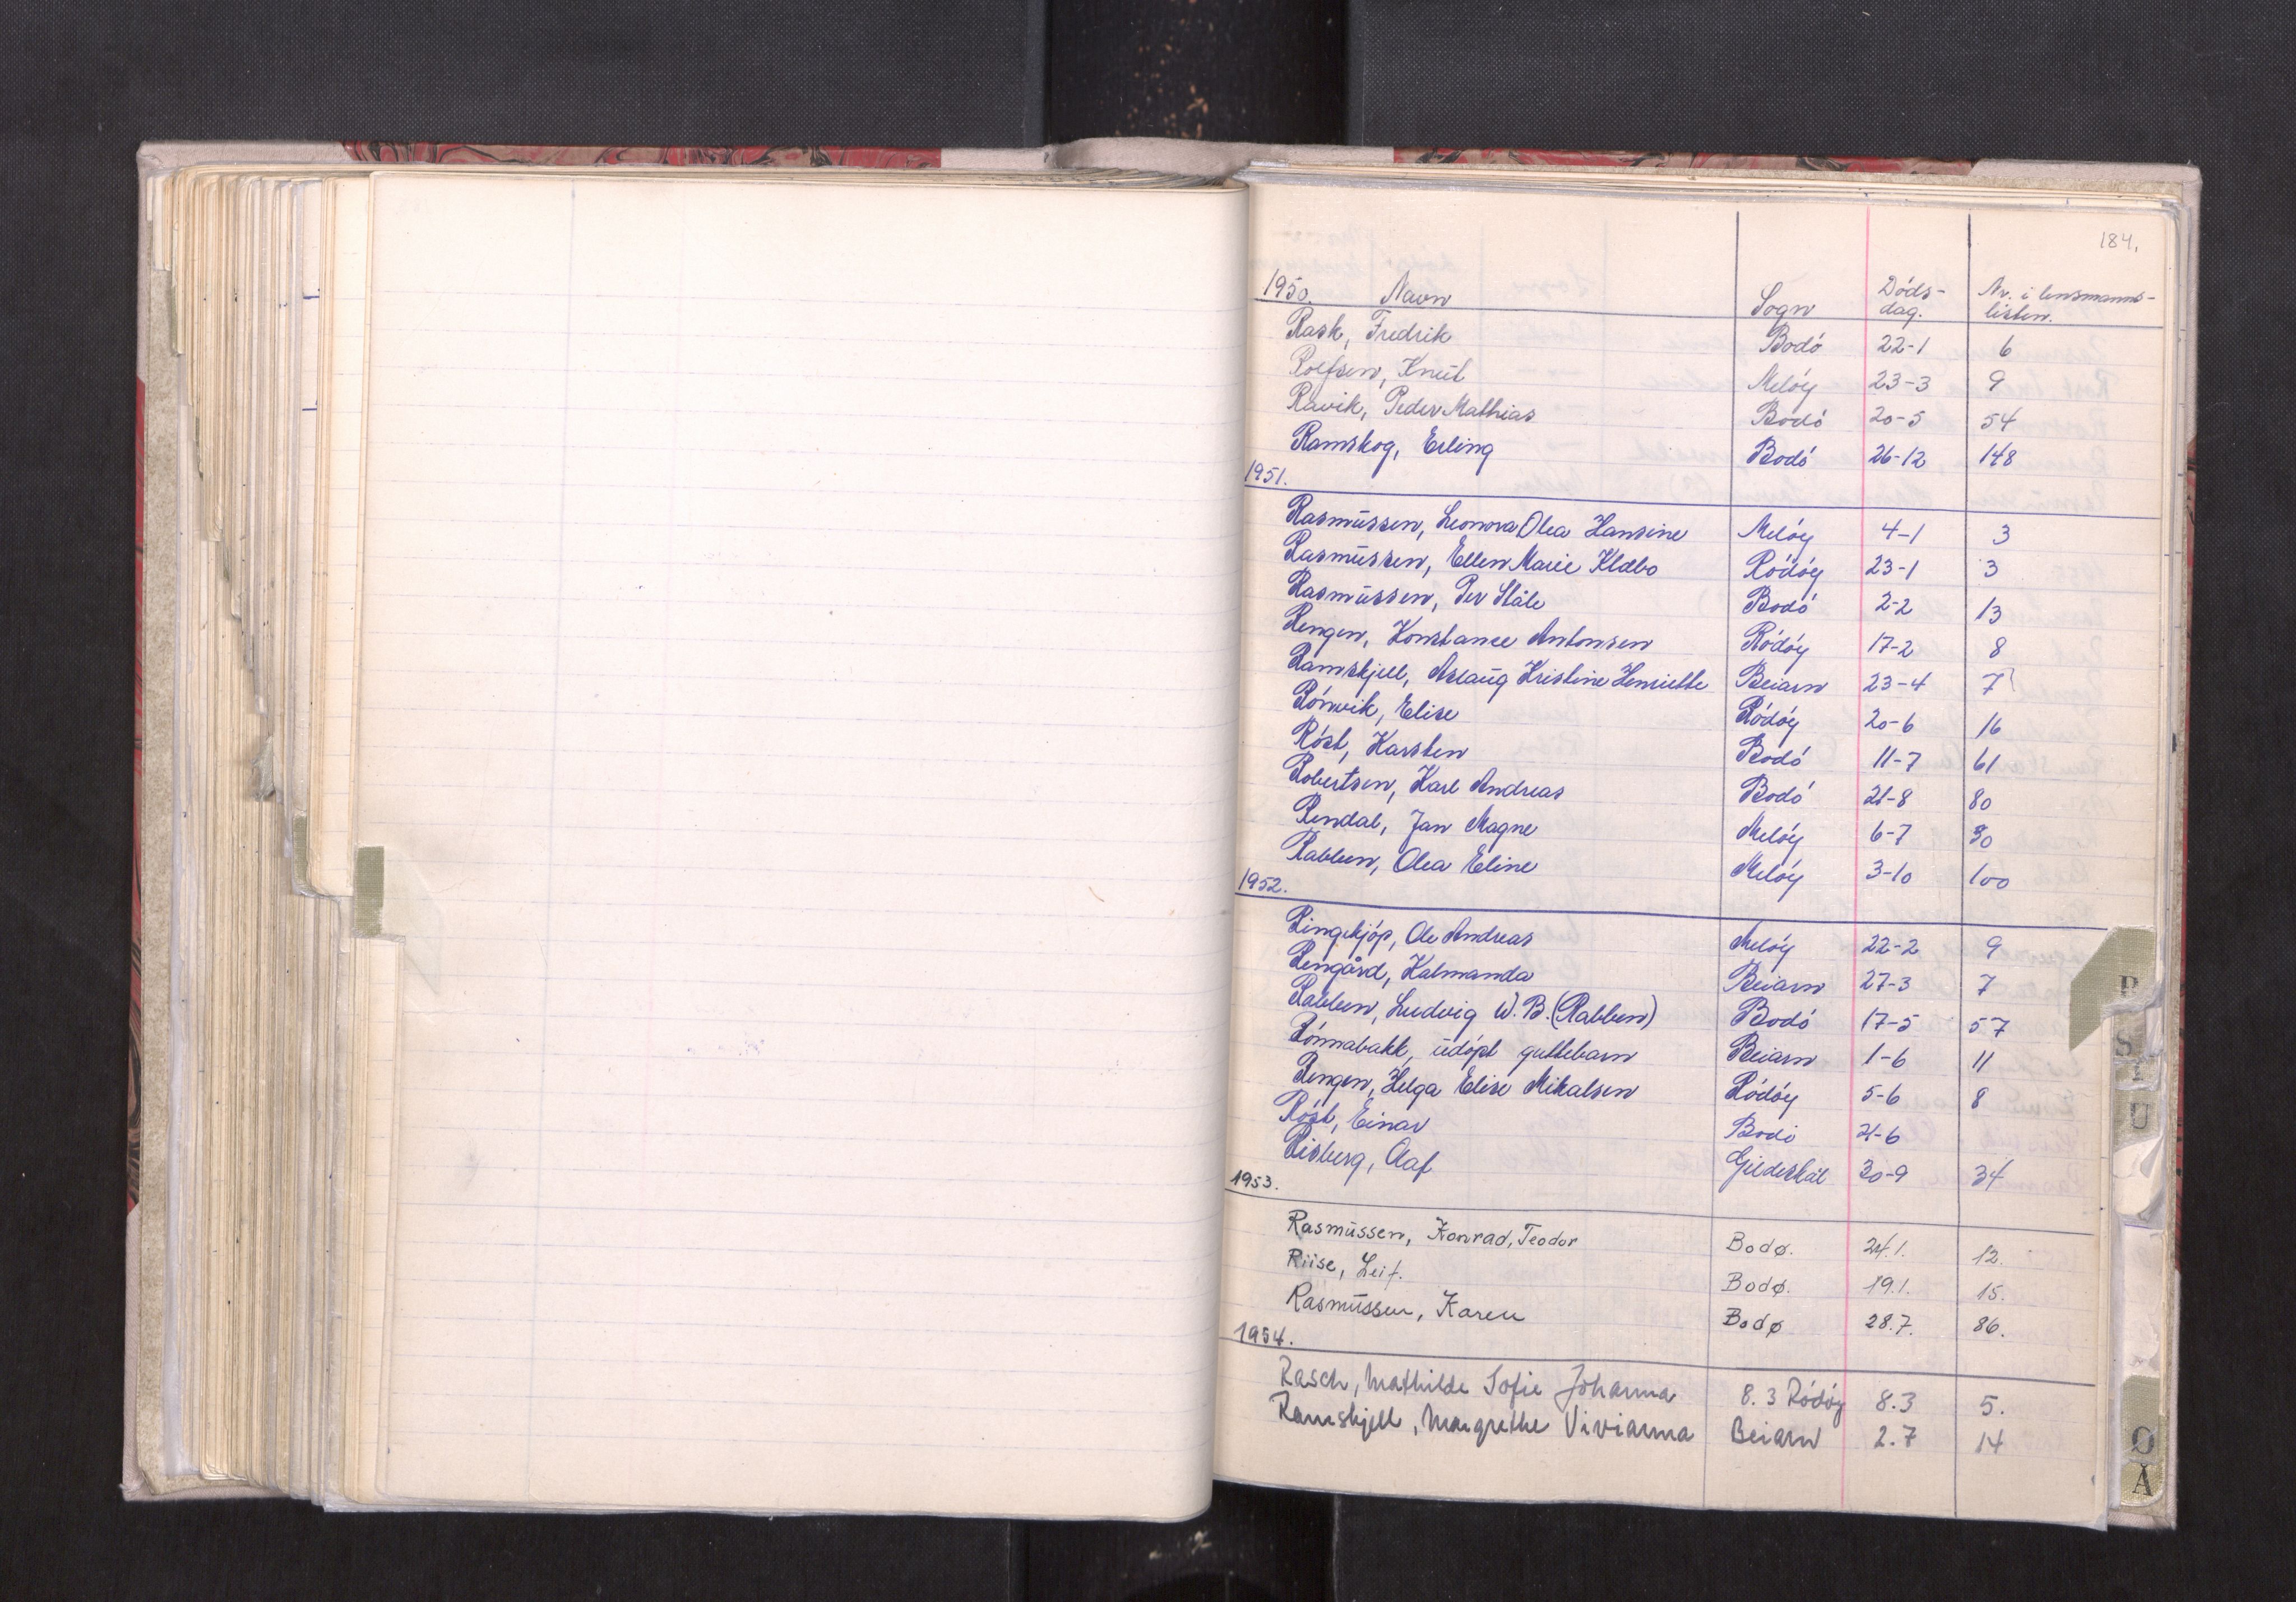 184.
1950. Navn Sogn Døds-dag. Nr. i lensmanns-listen.
Rask, Fredrik Bodó 22-1 6
Rolfsen, Knut Melóy 23-3 9
Ravik, Peder Mathias Bodó 20-5 54
Ramskog, Erling Bodó 26-12 148
1951.
Rasmussen, Leonora Olea Hansine Melóy 4-1 3
Rasmussen, Ellen Marie Kldbo Ródóy 23-1 3
Rasmussen, Per Ståle Bodó 2-2 13
Rengen, Konstanse Antonsen Ródóy 17-2 8
Ramskjell, Aslaug Kristine Henriette Beiarn 23-4 7
Rónvik, Elise Ródóy 20-6 16
Róst, Karsten Bodó 11-7 61
Robertsen, Karl Andreas Bodó 21-8 80
Rendal, Jan Magne Melóy 6-7 30
Rabben, Olea Eline Melóy 3-10 100
1952.
Ringkjóp, Ole Andreas Melóy 22-2 9
Rengård, Kalmanda Beiarn 27-3 7
Rabben, Ludvig W. B. (Rabben) Bodó 17-5 57
Rónnabakk, udópt guttebarn Beiarn 1-6 11
Rengen, Helga Elise Mikalsen Ródóy 5-6 8
Róst, Einar Bodó 21-6
Risberg, Olaf Gildeskål 30-9 34
1953.
Rasmussen, Konrad, Teodor Bodø. 24.1. 12.
Riise, Leif. Bodø. 19.1. 15.
Rasmussen, Karen Bodø 28.7. 86.
1954.
Rasch, Mathilde Sofie Johanna 8.3 Ródóy 8.3 5.
Ramskjell, Margrethe Vivianna Beiarn 2.7 14
R
S
U
Ø
Å